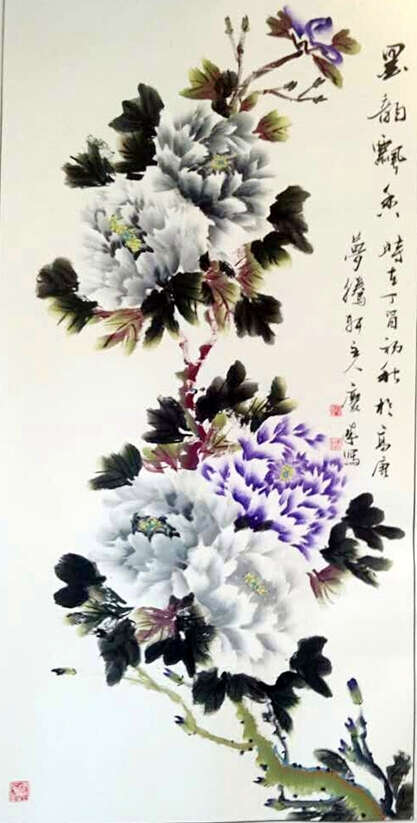 墨韵飘香 時在丁酉初秋於高唐
夢騰軒主人慶寿寫